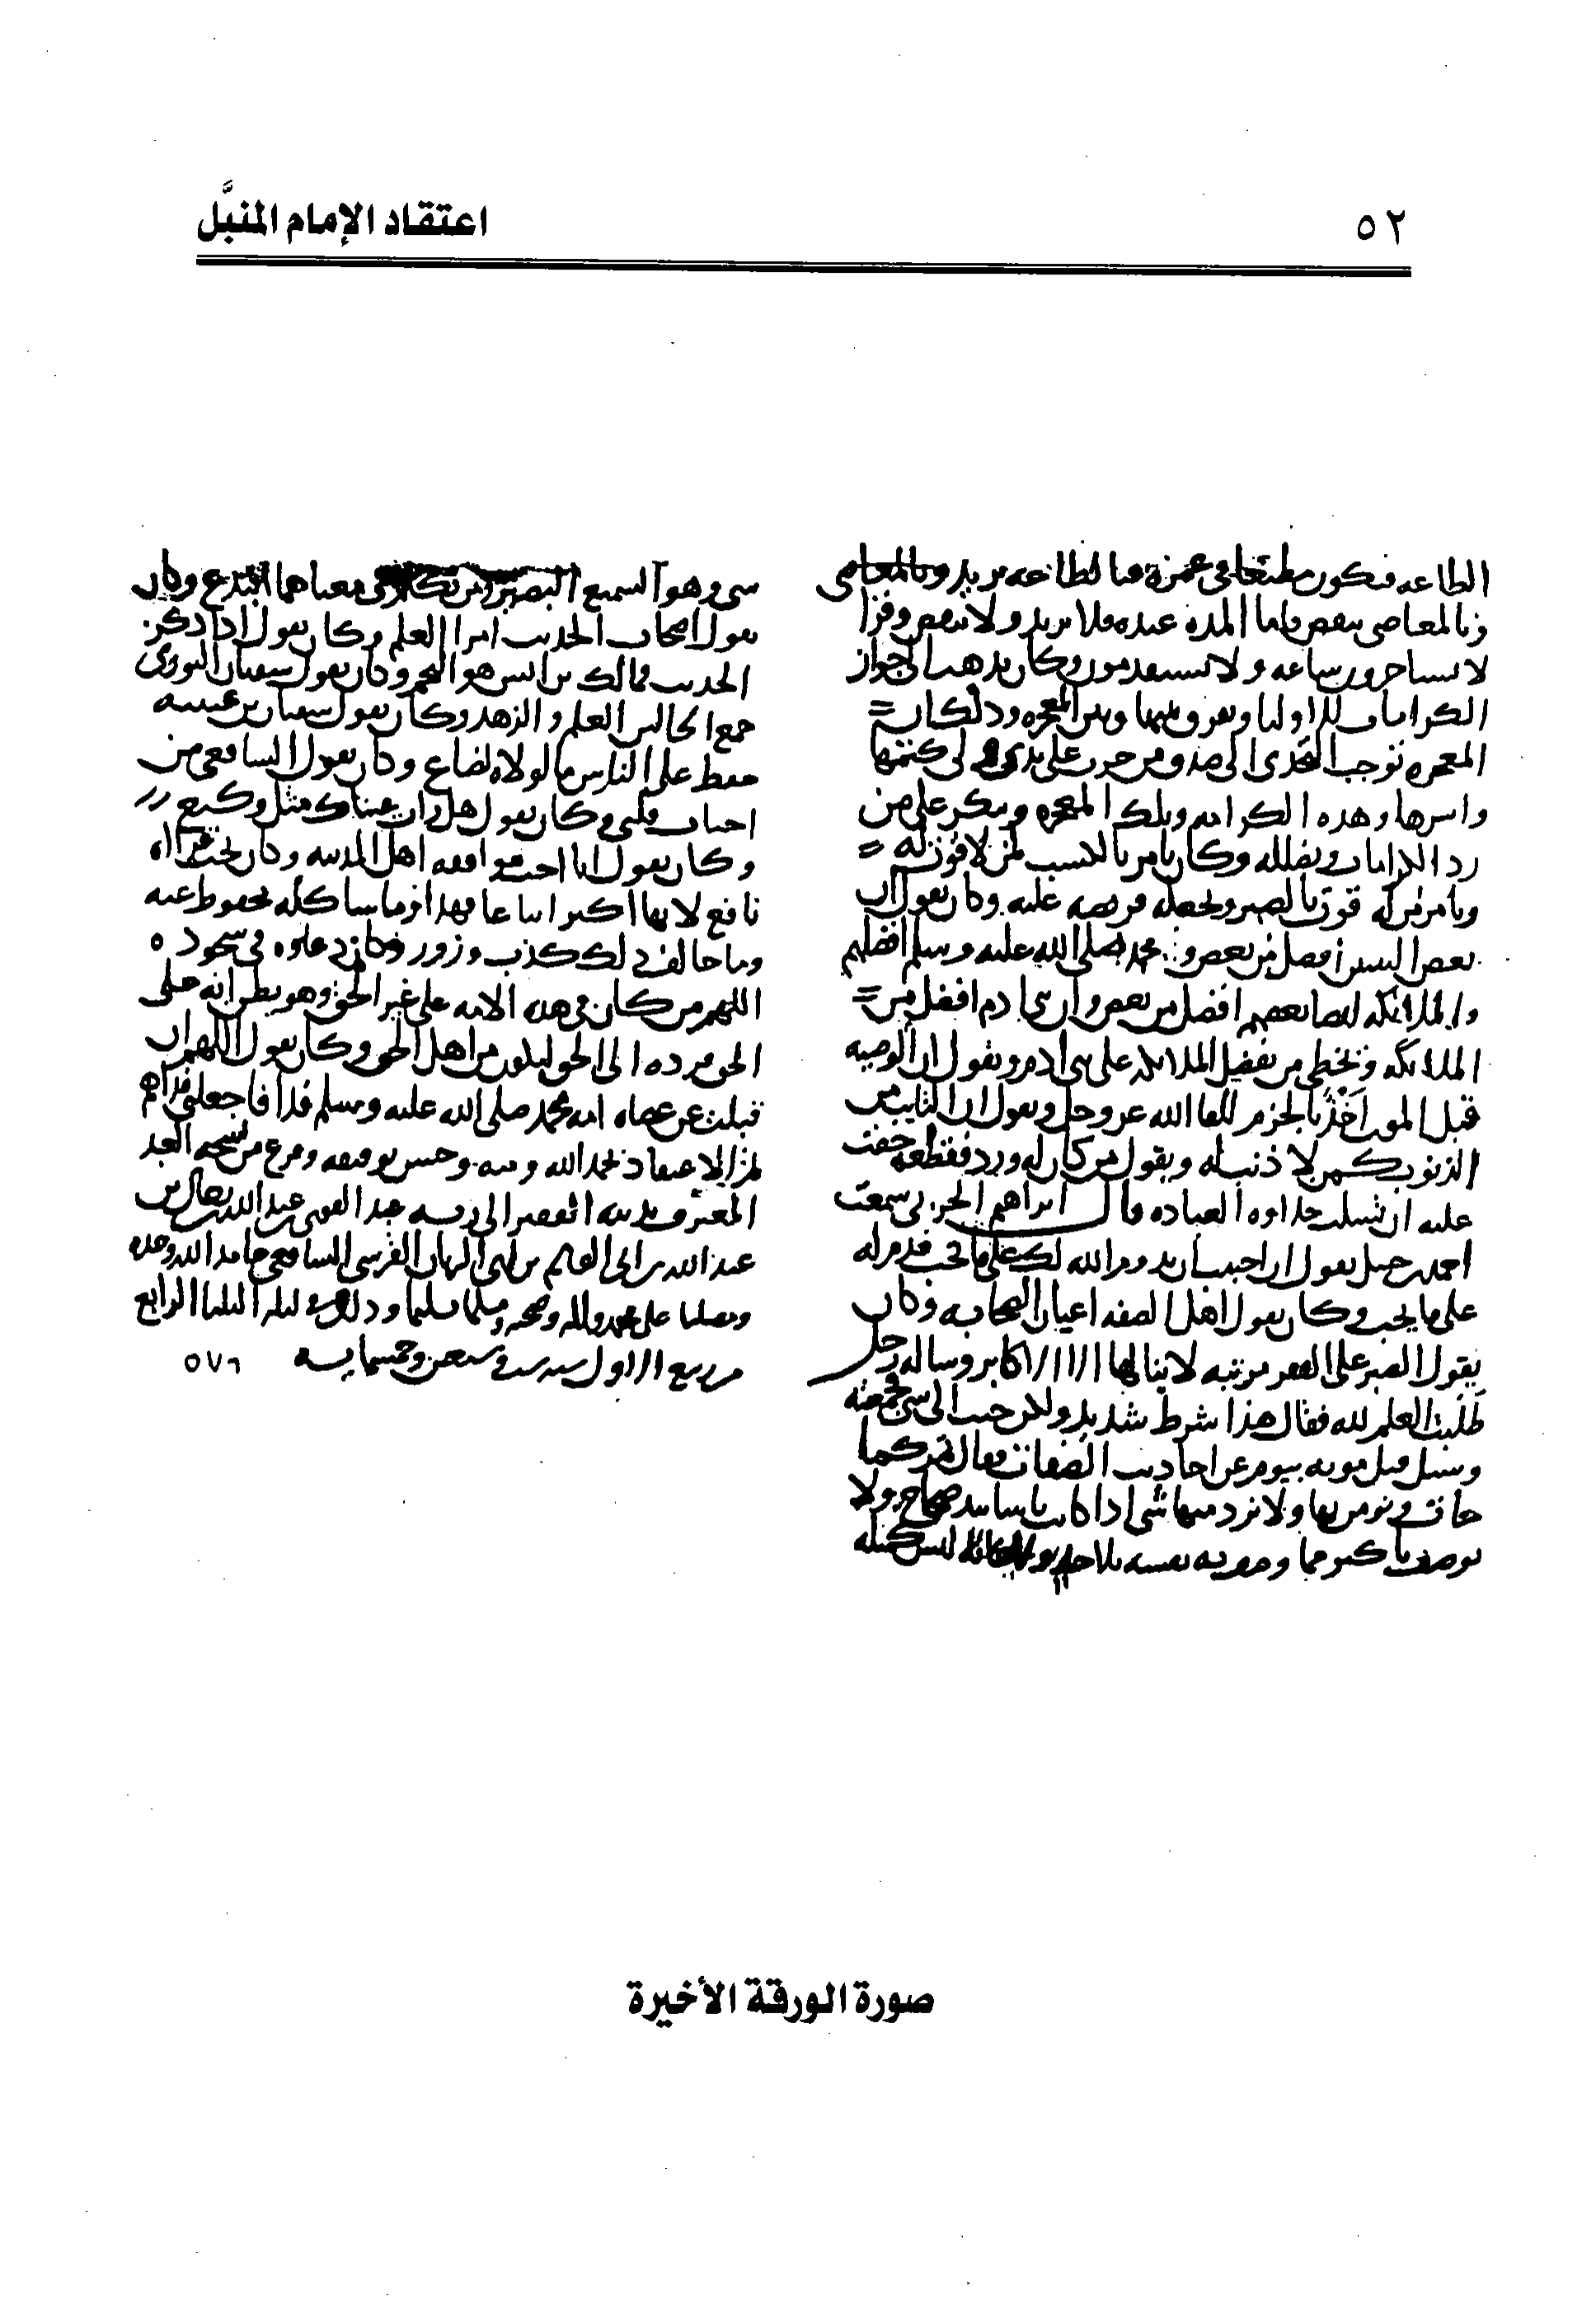 ٥٢
اعتقاد الإمام المنبَّل
الطاعه فيكون مطيعا في عمره فبالطاعه يزيد وبالمعاصي
وبالمعاصي ينقص واما المده عنده فلا يزيد ولا ينقص وقرا
لا يستاخرون ساعه ولا يستقدمون وكان يذهب الى جواز
الكرامات للاوليا ويفرق بينها وبين المعجزه وذلك ان
المعجزه توجب التحدي الى صدق من جرت على يديه كتمها
واسرها وهذه الكرامه وتلك المعجزه وينكر على من
رد الكرامات ويضلله وكان يامر بالكسب لمن لا قوت له
ويامر من له قوت بالصبر ويجعله فريضه عليه وكان يقول ان
بعض النبيين افضل من بعض ومحمد صلى الله عليه وسلم افضلهم
والملائكه ايضا بعضهم افضل من بعض وان بني ادم افضل من
الملائكه ويخطي من يفضل الملائكه على بني ادم ويقول ان الوصيه
قبل الموت اخذ بالحزم للقا الله عز وجل ويقول ان التايب من
الذنوب كمن لا ذنب له ويقول من كان له ورد فقطعه خفت
عليه ان يسلب حلاوه العباده قال ابراهيم الحربي سمعت
احمد بن حنبل يقول ان احببت ان يدوم الله لك على ما تحب فدم له
على ما يحب وكان يقول اهل الصفه اعيان الصحابه وكان
يقول الصبر على الفقر مرتبه لا ينالها الا الاكابر وساله رجل
طلبت العلم لله فقال هذا شرط شديد ولكن حبب الي شي فجمعته
وسئل قبل موته بيوم عن احاديث الصفات فقال تمر كما
جات ويومن بها ولا نرد منها شي اذا كانت باسانيد صحاح ولا
يوصف باكثر مما وصف به نفسه بلا حد ولا غايه ليس كمثله
شي وهو السميع البصير ومن تكلم في معناها ابتدع وكان
يقول اصحاب الحديث امرا العلم وكان يقول اذا ذكر
الحديث فمالك بن انس هو النجم وكان يقول سفيان الثوري
جمع الحالين العلم والزهد وكان يقول سفيان بن عيينه
حفظ على الناس ما لولاه لضاع وكان يقول الشافعي من
احباب قلبي وكان يقول هل رات عيناك مثل وكيع
وكان يقول انا احب موافقه اهل المدينه وكان يحب قراه
نافع لانها اكثر اتباعا فهذا وما شاكله محفوظ عنه
وما خالف ذلك كذب وزور وكان دعاوه في سجوده
اللهم من كان في هذه الامه على غير الحق وهو يظن انه على
الحق فرده الى الحق ليكون من اهل الحق وكان يقول اللهم ان
قبلت عن عصاه امه محمد صلى الله عليه وسلم فدا فاجعلني فداهم
الاعتقاد بحمد الله ومنه وحسن توفيقه وفرغ من نسخه العبد
المعترف بذنبه الفقير الى ربه عبد الله بن
عبد الله بن ابي القرشي الشافعي حامدا لله وحده
ومصليا على محمد واله وصحبه ومسلما تسليما وذلك في ليله الثلثا الرابع
من ربيع الاول سنه ست وسبعين وخمسمايه ٥٧٦
صورة الورقة الأخيرة